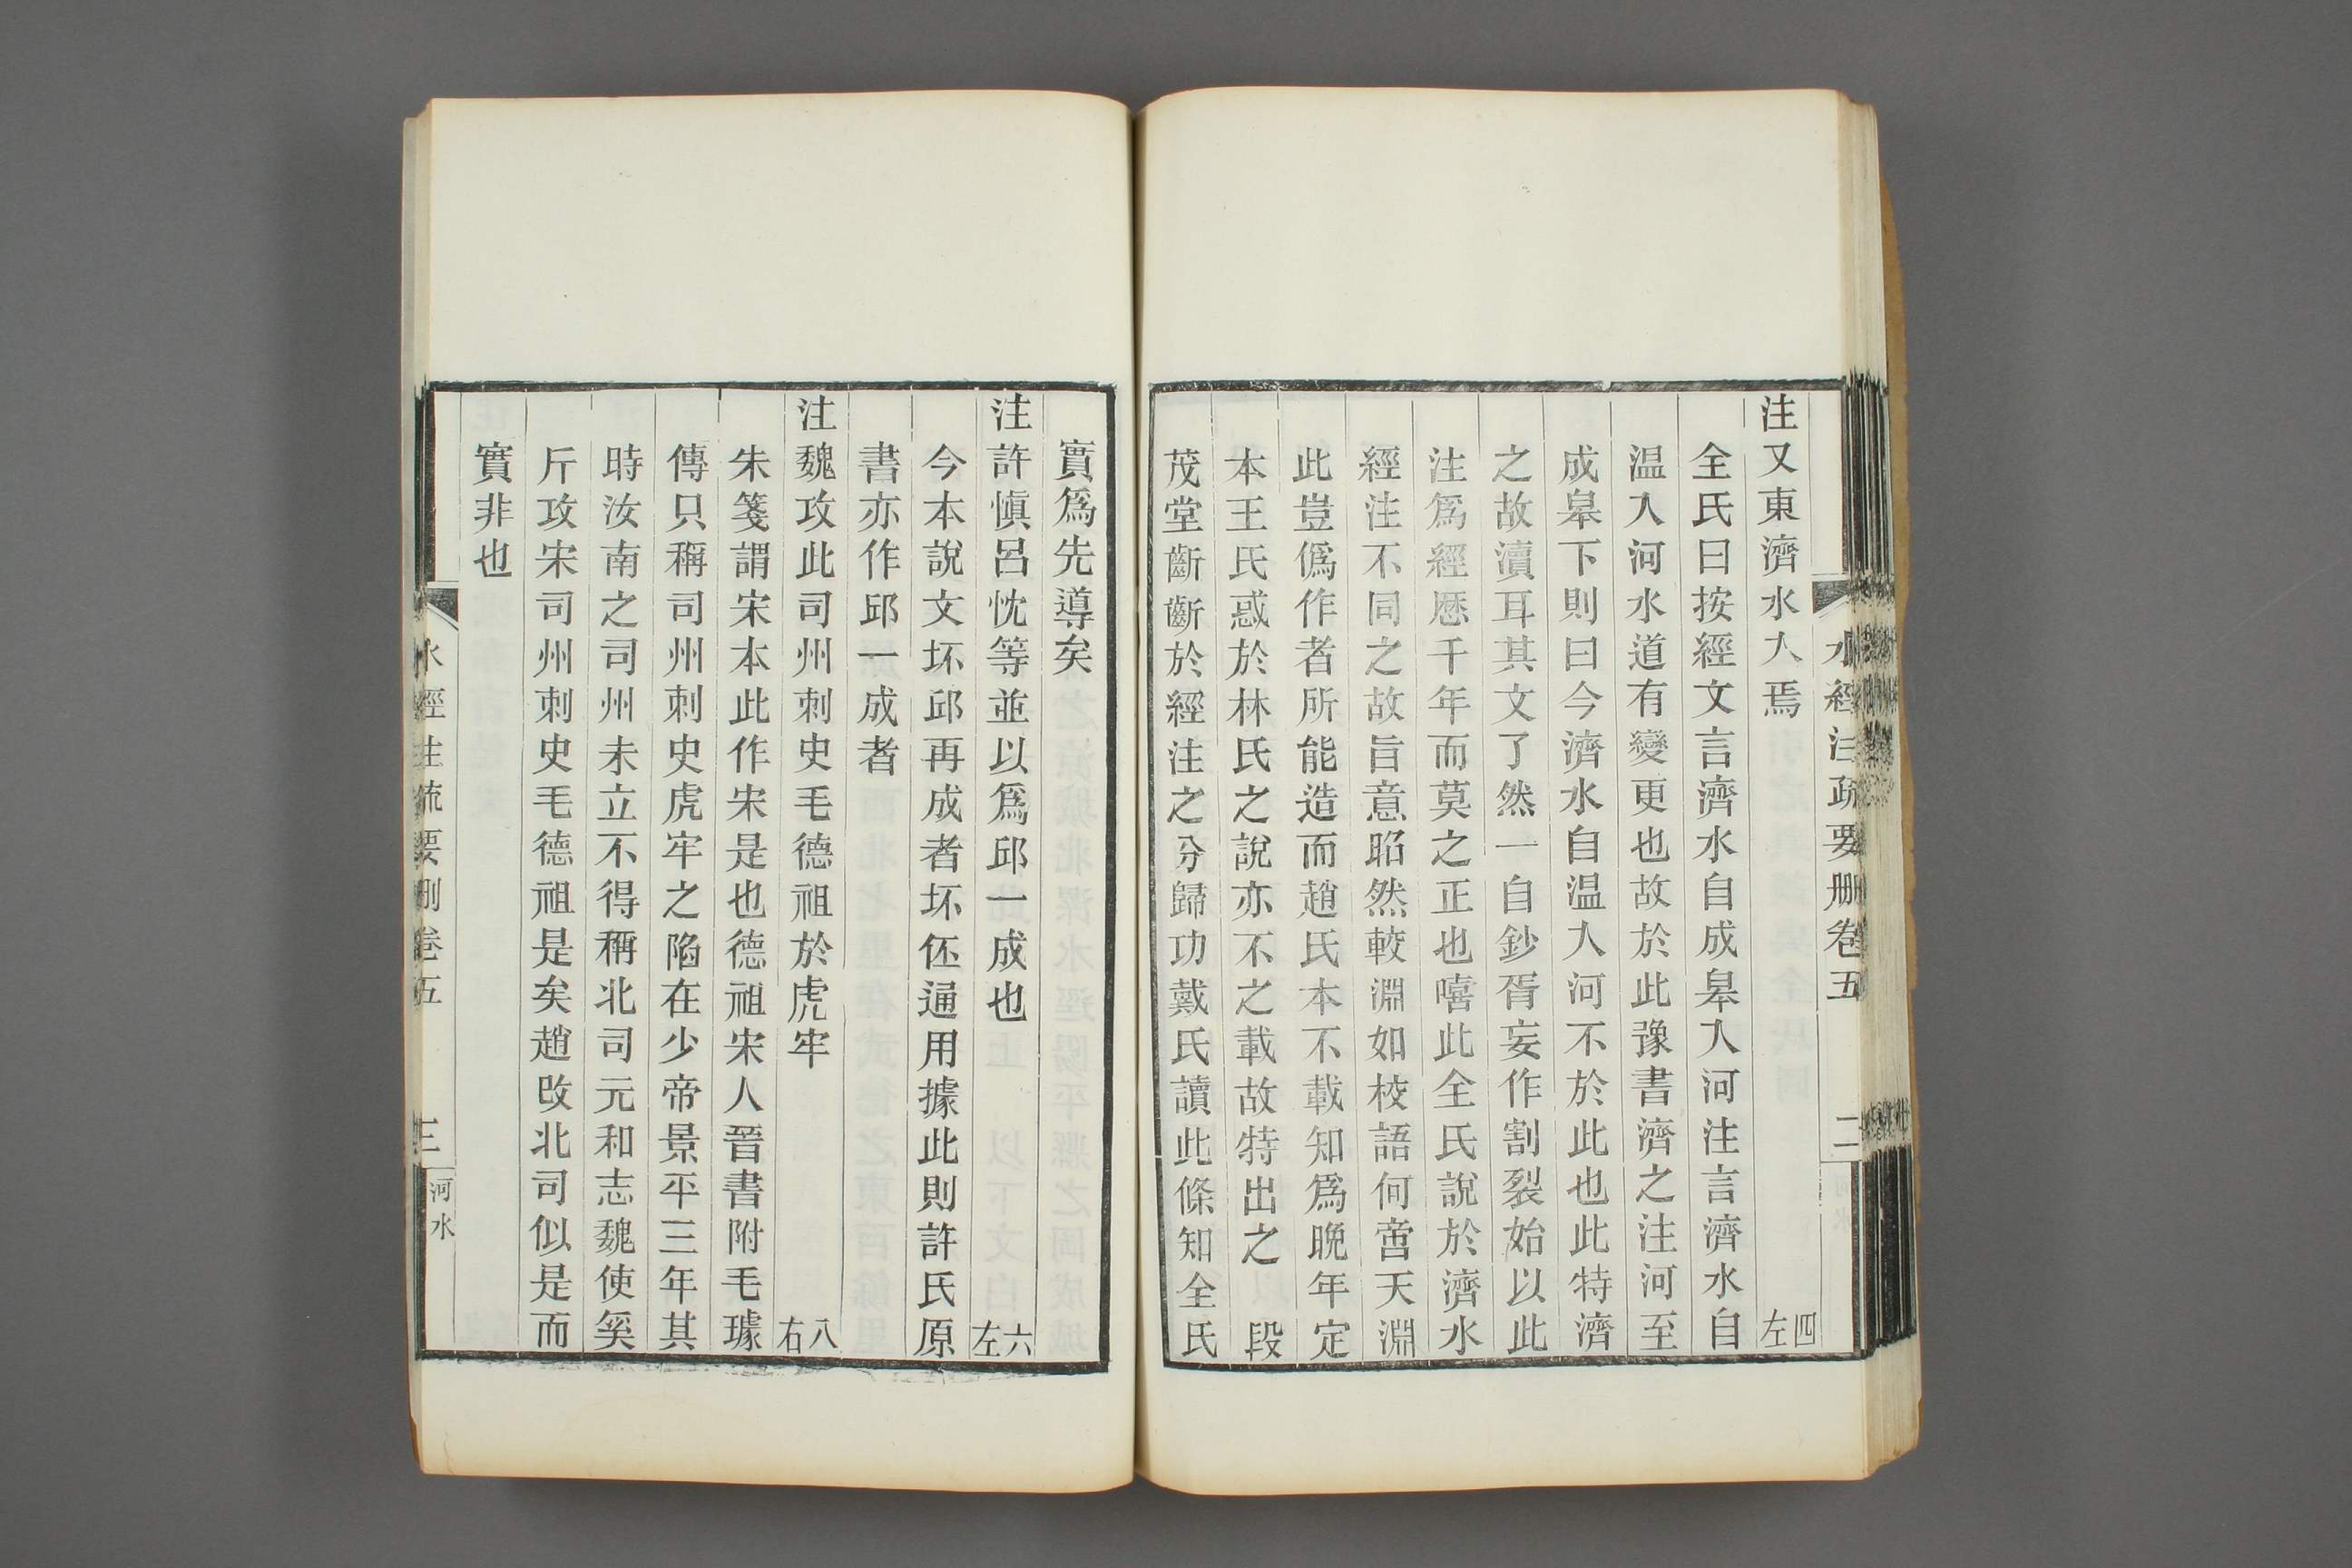 水經注疏要刪卷五 二
注又東濟水入焉 四左
全氏曰按經文言濟水自成皋入河注言濟水自
温入河水道有變更也故於此豫書濟之注河至
成皋下則曰今濟水自温入河不於此也此特濟
之故瀆耳其文了然一自鈔胥妄作割裂始以此
注爲經歷千年而莫之正也嘻此全氏說於濟水
經注不同之故旨意昭然較淵如校語何啻天淵
此豈僞作者所能造而趙氏本不載知爲晚年定
本王氏惑於林氏之說亦不之載故特出之 段
茂堂齗齗於經注之分歸功戴氏讀此條知全氏
實爲先導矣
注許愼呂忱等並以爲邱一成也 六左
今本說文坏邱再成者坏伾通用據此則許氏原
書亦作邱一成者
注魏攻此司州刺史毛德祖於虎牢 八右
朱箋謂宋本此作宋是也德祖宋人晉書附毛璩
傳只稱司州刺史虎牢之陷在少帝景平三年其
時汝南之司州未立不得稱北司元和志魏使奚
斤攻宋司州刺史毛德祖是矣趙改北司似是而
實非也
水經注疏要刪卷五 三 河水